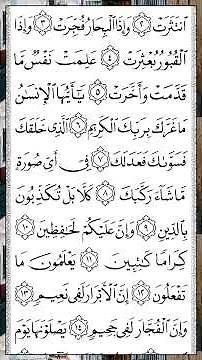 ٱنتَثَرَتۡ ٢ وَإِذَا ٱلۡبِحَارُ فُجِّرَتۡ ٣ وَإِذَا
ٱلۡقُبُورُ بُعۡثِرَتۡ ٤ عَلِمَتۡ نَفۡسٞ مَّا
قَدَّمَتۡ وَأَخَّرَتۡ ٥ يَٰٓأَيُّهَا ٱلۡإِنسَٰنُ
مَا غَرَّكَ بِرَبِّكَ ٱلۡكَرِيمِ ٦ ٱلَّذِي خَلَقَكَ
فَسَوَّىٰكَ فَعَدَلَكَ ٧ فِيٓ أَيِّ صُورَةٖ
مَّا شَآءَ رَكَّبَكَ ٨ كَلَّا بَلۡ تُكَذِّبُونَ
بِٱلدِّينِ ٩ وَإِنَّ عَلَيۡكُمۡ لَحَٰفِظِينَ ١٠
كِرَامٗا كَٰتِبِينَ ١١ يَعۡلَمُونَ مَا
تَفۡعَلُونَ ١٢ إِنَّ ٱلۡأَبۡرَارَ لَفِي نَعِيمٖ ١٣
وَإِنَّ ٱلۡفُجَّارَ لَفِي جَحِيمٖ ١٤ يَصۡلَوۡنَهَا يَوۡمَ